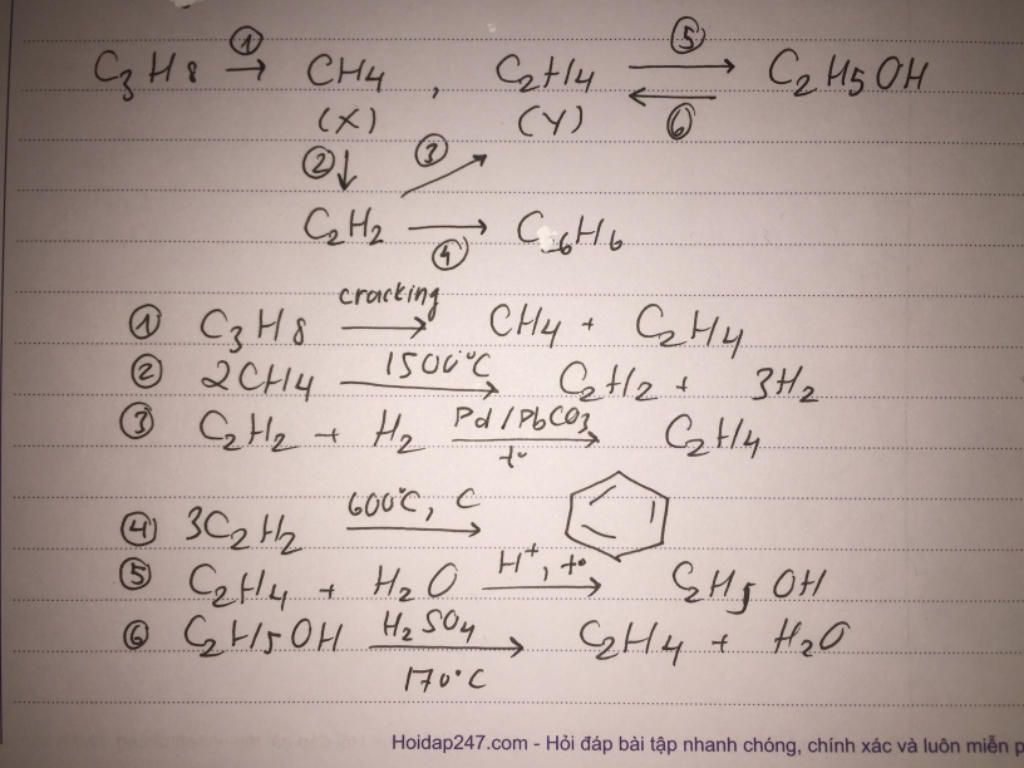 C3H8 →① CH4 , C2H4 ⇄⑤⑥ C2H5OH
(X) (Y)
②↓ ③↗
C2H2 →④ C6H6
① C3H8 —cracking→ CH4 + C2H4
② 2CH4 —1500°C→ C2H2 + 3H2
③ C2H2 + H2 —Pd/PbCO3, t°→ C2H4
④ 3C2H2 —600°C, C→
⑤ C2H4 + H2O —H+, t°→ C2H5OH
⑥ C2H5OH —H2SO4, 170°C→ C2H4 + H2O
Hoidap247.com - Hỏi đáp bài tập nhanh chóng, chính xác và luôn miễn p